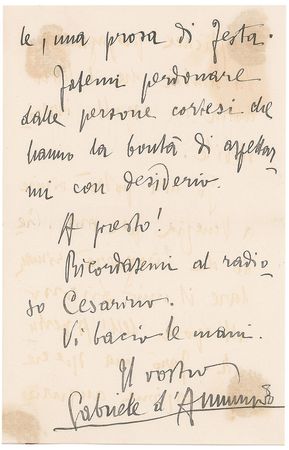 le, una prova di festa.
Fatemi perdonare
dalle persone cortesi che
hanno la bontà di aspettar
mi con desiderio.
A presto!
Ricordatemi al radio-
so Cesarino.
Vi bacio le mani.
Il vostro
Gabriele d'Annunzio